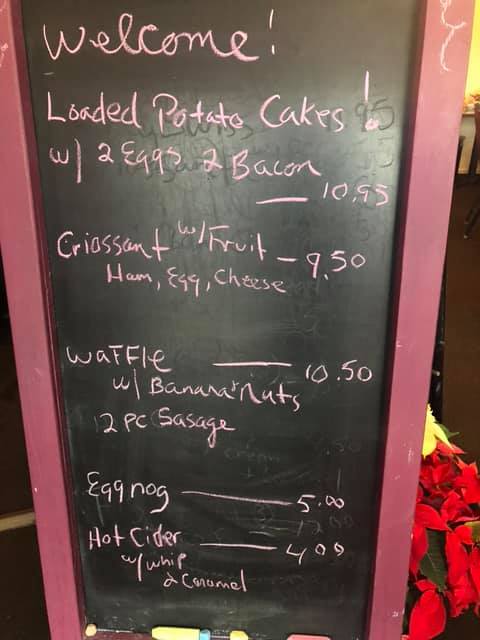 Welcome!
Loaded Potato Cakes!
w/ 2 Eggs 2 Bacon
— 10.95
Criossant w/Fruit — 9.50
Ham, Egg, Cheese
Waffle — 10.50
w/ Banana+Nuts
2 pc Sasage
Eggnog — 5.00
Hot Cider — 4.00
w/ whip
& Caramel